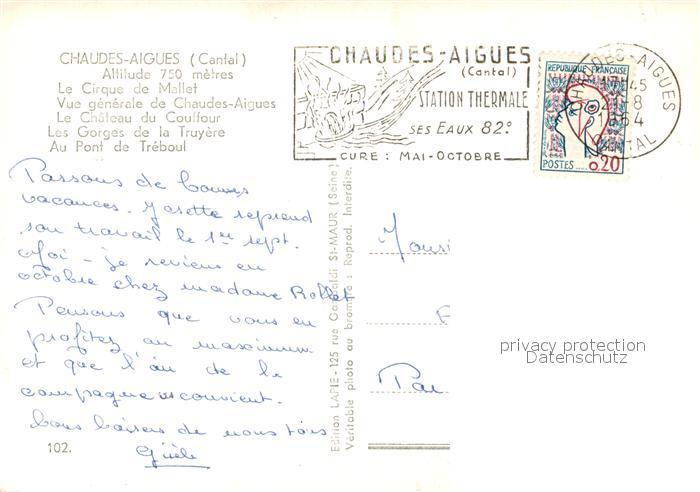 CHAUDES-AIGUES (Cantal)
Altitude 750 mètres
Le Cirque de Mallet
Vue générale de Chaudes-Aigues
Le Château du Couffour
Les Gorges de la Truyère
Au Pont de Tréboul
CHAUDES-AIGUES
(Cantal)
STATION THERMALE
SES EAUX 82°
CURE : MAI-OCTOBRE
REPUBLIQUE FRANÇAISE
POSTES
0,20
CHAUDES-AIGUES
1964
CANTAL
Passons de bonnes
vacances. Josette reprend
son travail le 1er sept.
Moi - je reviens en
octobre chez madame Rollet
Pensons que vous en
profitez au maximum
et que l'air de la
campagne vs convient.
bons baisers de nous tous
Gisèle
102.
Edition LAPIE-125 rue Garibaldi ST-MAUR (Seine)
Véritable photo au bromure : Reprod. Interdite.
privacy protection
Datenschutz